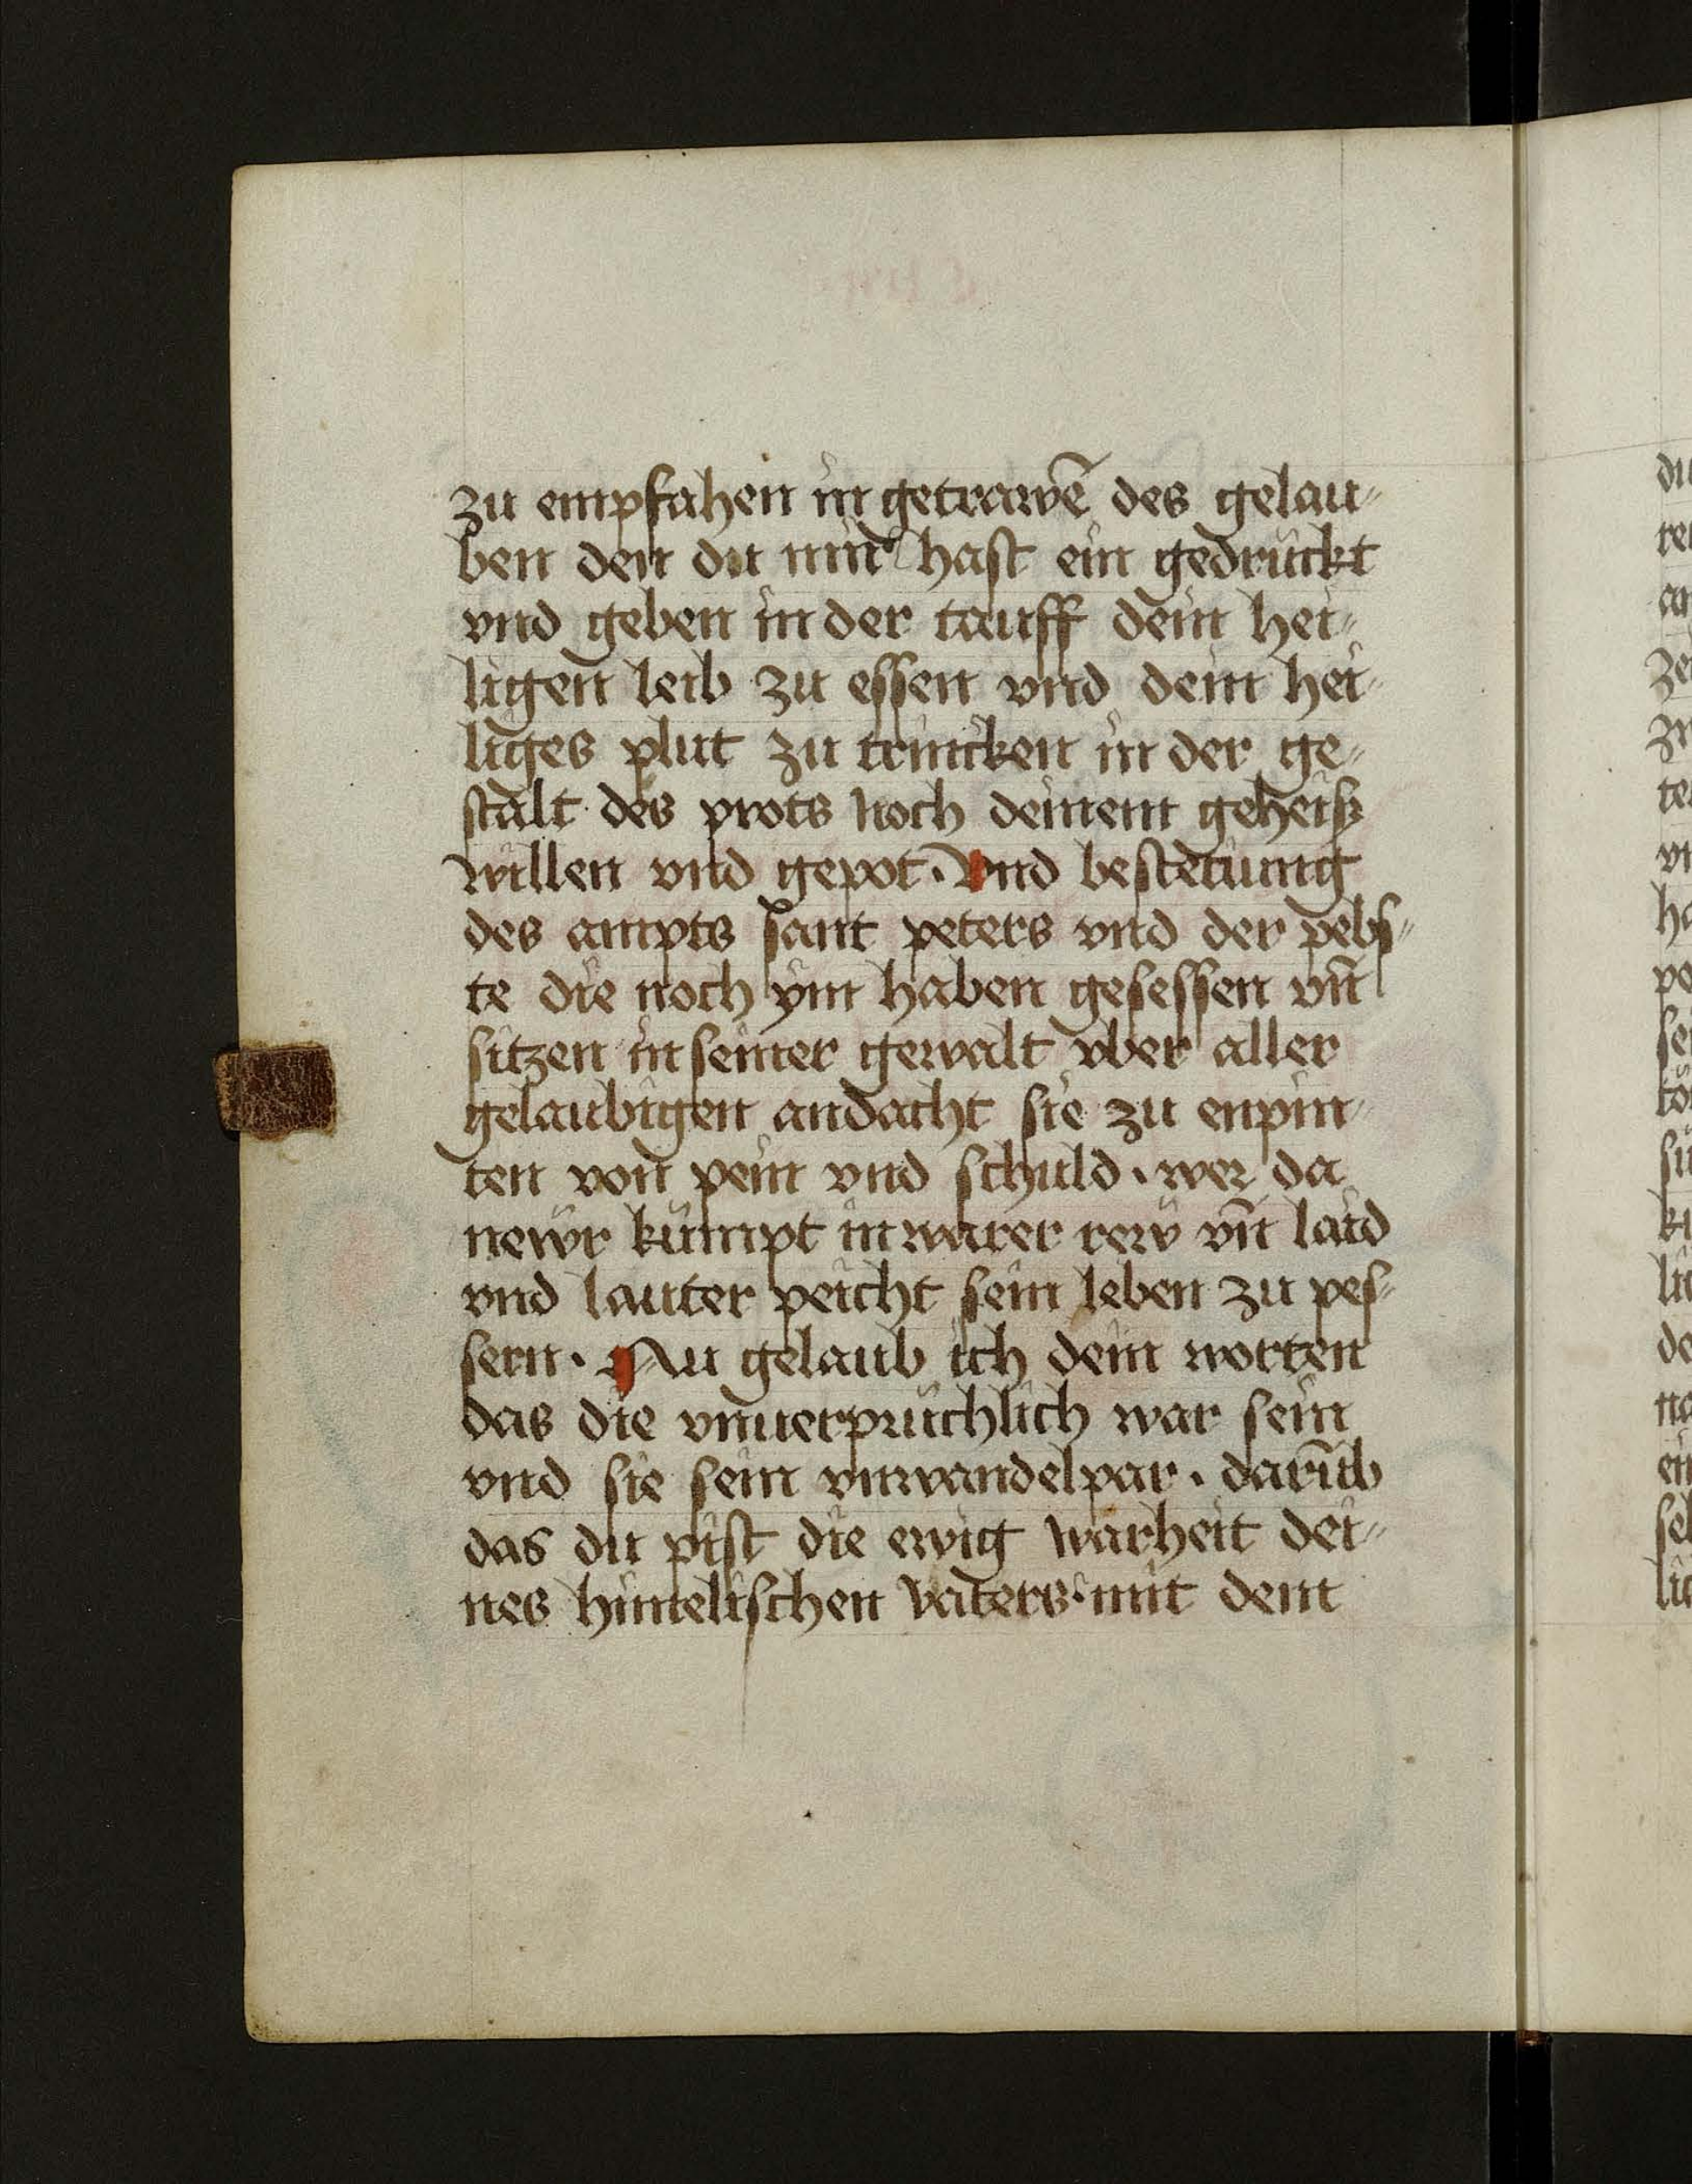 zu empfahen in getrawē des gelau⸗
ben den du mir hast ein gedruckt
vnd geben in der tauff dein hei⸗
ligen leib zu essen vnd dein hei⸗
liges plut zu trincken in der ge⸗
stalt des prots noch deinem geheiß
willen vnd gepot. Vnd bestetiung
des ampts sant peters vnd der pebs⸗
te die noch ym haben gesessen vn̄
sitzen in seiner gewalt vber aller
gelaubigen andacht sie zu enpin⸗
ten von pein vnd schuld. wer da
newr kumpt in warer rew vn̄ laid
vnd lauter peicht sein leben zu pes⸗
sern. Nu gelaub ich dein worten
das die vnuerpruchlich war sein
vnd sie sein vnwandelpar. darūb
das du pist die ewig warheit dei⸗
nes himelischen vaters. mit dem